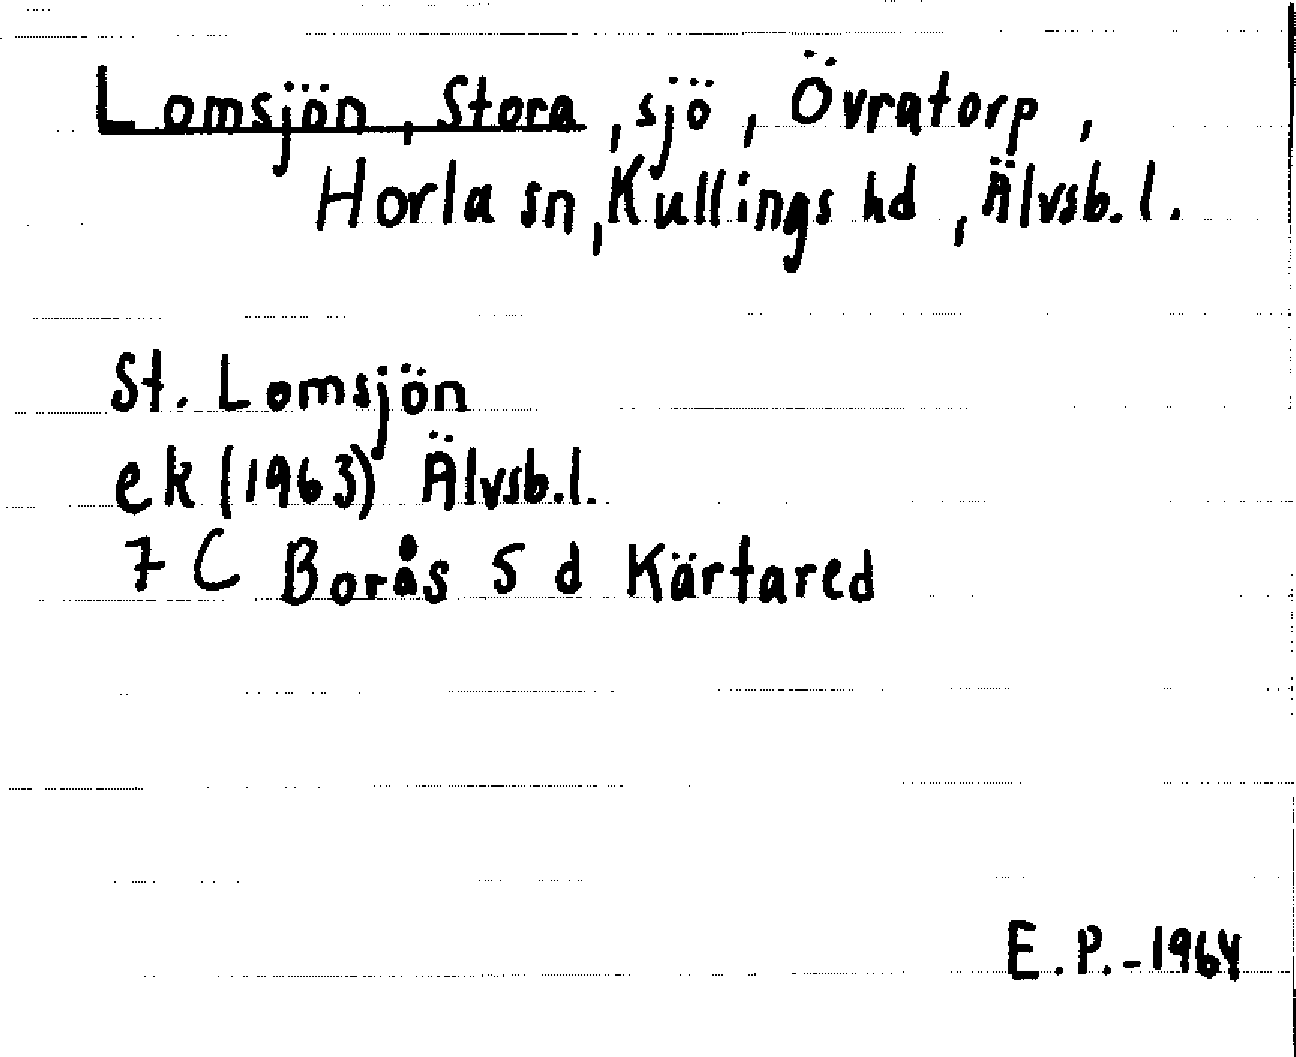 Lomsjön, Stora, sjö, Övratorp,
Horla sn, Kullings hd, Älvsb. l.
St. Lomsjön
ek (1963) Älvsb. l.
7 C Borås 5 d Kärtared
E. P. - 1964